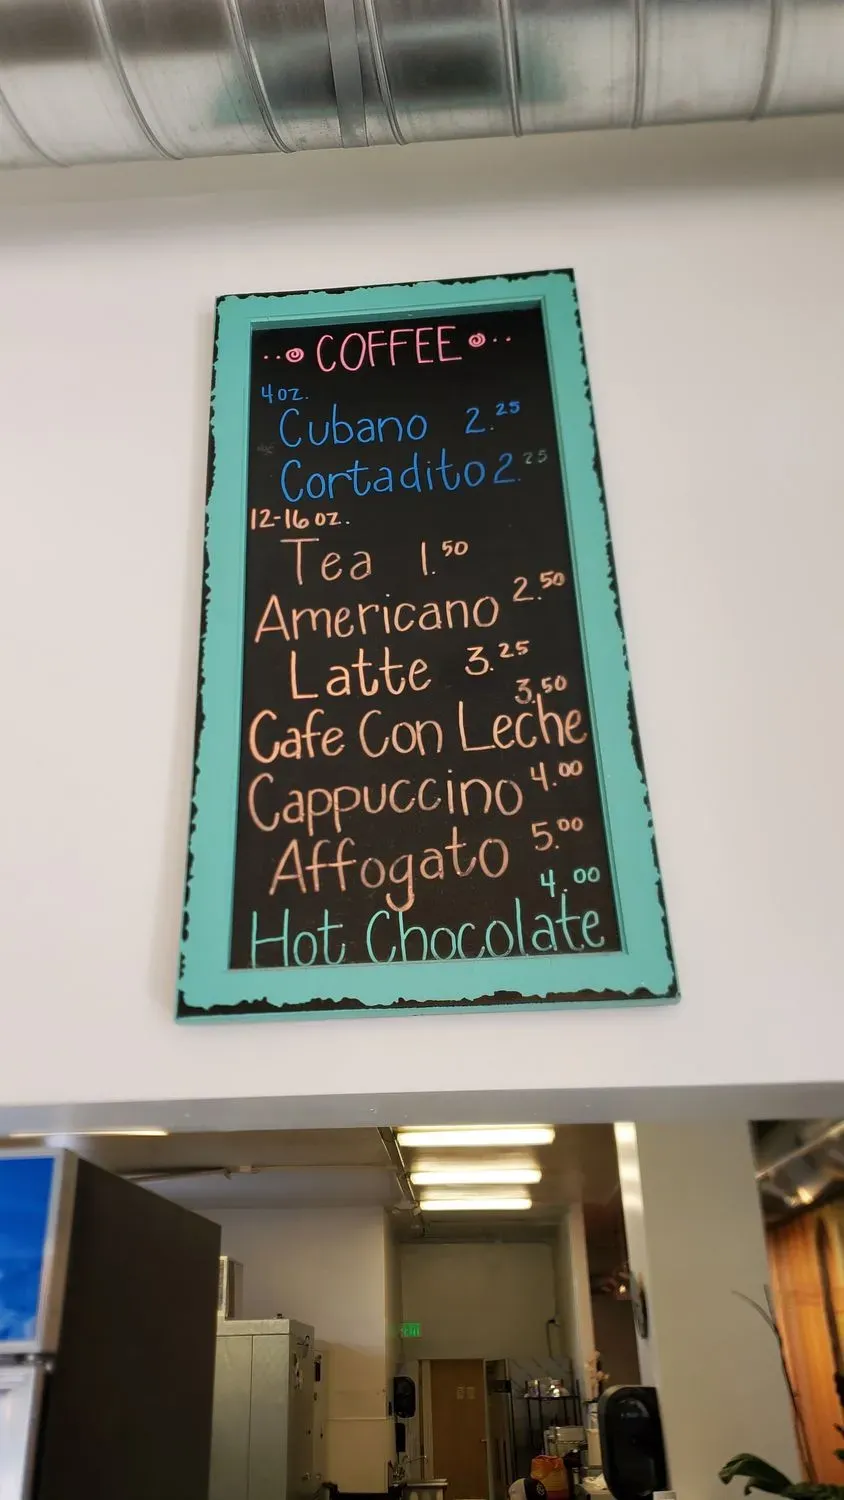 COFFEE
4oz.
Cubano 2.25
Cortadito 2.25
12-16 oz.
Tea 1.50
Americano 2.50
Latte 3.25
3.50
Cafe Con Leche
Cappuccino 4.00
Affogato 5.00
4.00
Hot Chocolate
EXIT